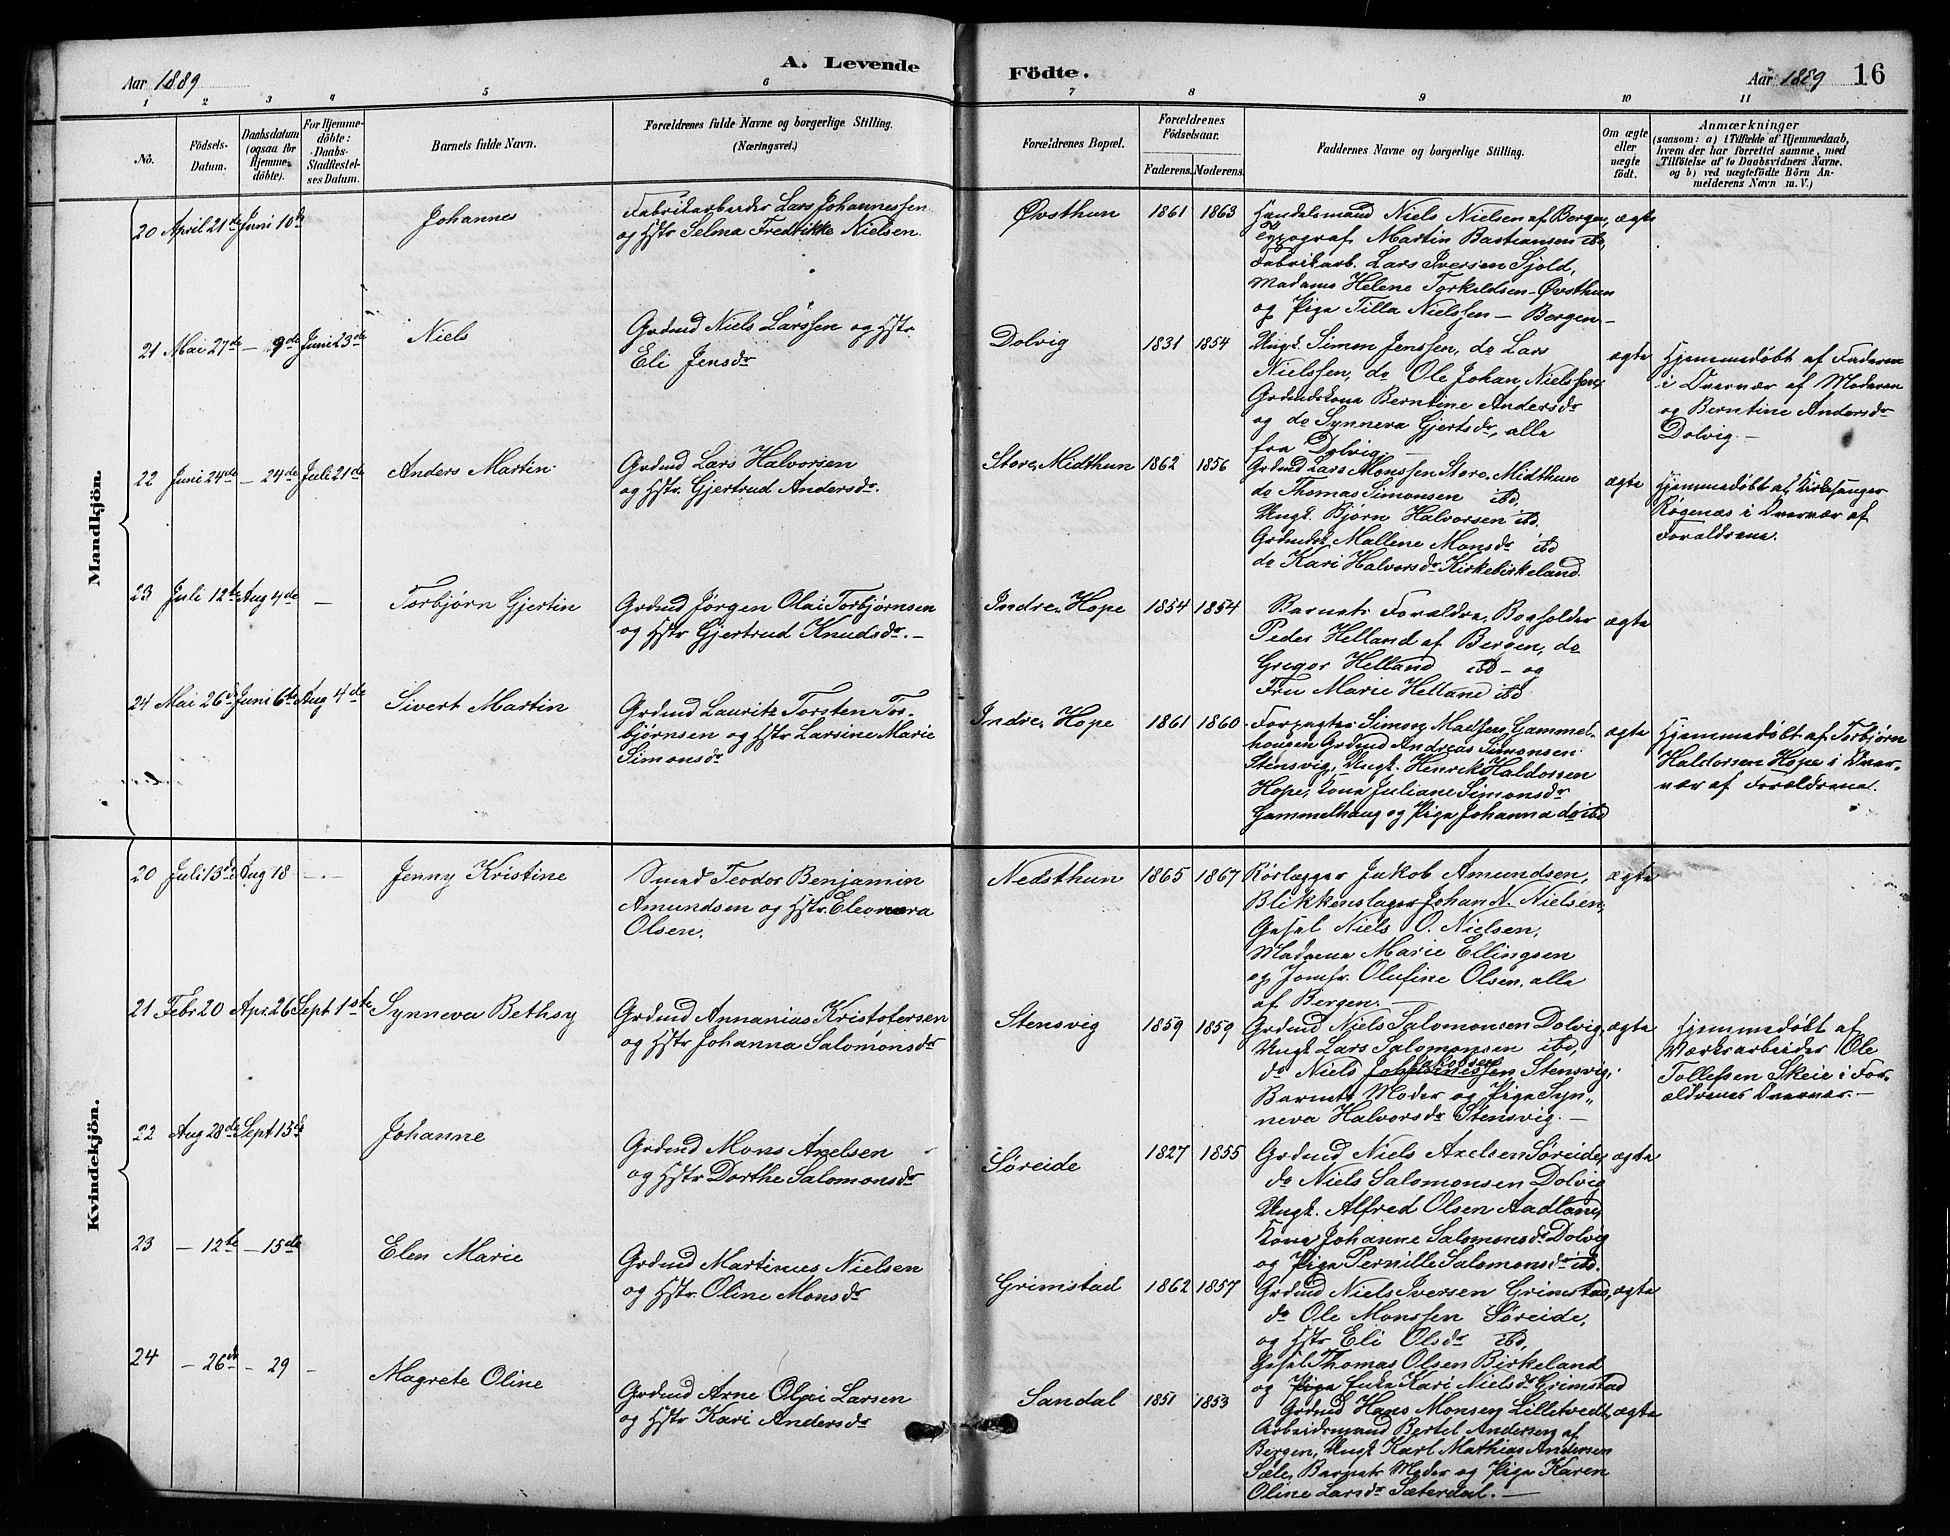 A. Levende Födte.
Aar 1889
Aar 1889
16
1 2 3 4 5 6 7 8 9 10 11
No.
Födsels-Datum.
Daabsdatum (ogsaa for Hjemme-döbte).
For Hjemme-döbte: Daabs-Stadfæstel-ses Datum.
Barnets fulde Navn.
Forældrenes fulde Navne og borgerlige Stilling. (Næringsvei.)
Forældrenes Bopæl.
Forældrenes Födselsaar.
Faderens. Moderens.
Faddernes Navne og borgerlige Stilling.
Om ægte eller uægte födt.
Anmærkninger
(saasom: a) i Tilfælde af Hjemmedaab, hvem der har forrettet samme, med Tilföielse af to Daabsvidners Navne. og b) ved uægtefödte Börn An-melderens Navn m. V.)
Mandkjön.
20 April 21de Juni 10de
Johannes
Fabrikarbeider Lars Johannessen
og Hstr Selma Fredrikke Nielsen.
Øvsthun 1861 1863
Handelsmand Niels Nielsen af Bergen, ægte
Typograf Martin Bastiansen ibd,
Fabrikarb. Lars Iversen Sjold,
Madame Helene Torkildsen-Øvsthun
og Pige Tilla Nielssen - Bergen -
21 Mai 27de - 9de Juni 23de
Niels
Grdmd Niels Larssen og Hstr
Eli Jensdr
Dolvig 1831 1854
Ungk. Simon Jenssen, do Lars
Nielssen, do Ole Johan Nielssen,
Grdmdskone Berntine Andersdr
og do Synneva Gjertsdr, alle
fra Dolvig. -
ægte
Hjemmedøbt af Faderen
i Overvær af Moderen
og Berntine Andersdr
Dolvig. -
22 Juni 24de - 24de Juli 21de
Anders Martin
Grdmd Lars Halvorsen
og Hstr. Gjertrud Andersdr.
Store, Midthun 1862 1856
Grdmd Lars Monssen Store, Midthun
do Thomas Simonsen ibd,
Ungk. Bjørn Halvorsen ibd.
Grdmdsk. Mallene Monsdr ibd
do Kari Halvorsdr Kirkebirkeland.
ægte
Hjemmedøbt af Kirkesanger
Røgenæs i Overvær af
Forældrene.
23 Juli 12te Aug 4de -
Torbjørn Gjertin
Grdmd Jørgen Olai Torbjørnsen
og Hstr Gjertrud Knudsdr. -
Indre, Hope 1854 1854
Barnets Forældre, Bogholder
Peder Helland af Bergen, do
Gregor Helland ibd - og
Fru Marie Helland ibd
ægte
24 Mai 26de Juni 6te Aug 4de
Sivert Martin
Grdmd Lauritz Torsten Tor-
bjørnsen og Hstr Larsine Marie
Simonsdr
Indre, Hope 1861 1860
Forpagter Simon Madsen Gammel-
hougen Grdmd Andreas Simonsen
Stensvig, Ungk. Henrik Haldorsen
Hope, Kone Juliane Simonsdr
Gammelhaug og Pige Johanna do ibd
ægte
Hjemmedøbt af Torbjørn
Haldorsen Hope i Over-
vær af Forældrene.
Kvindekjön.
20 Juli 13de Aug 18 - . -
Jenny Kristine
Smed Teodor Benjamin
Amundsen og Hstr. Eleonora
Olsen.
Nedsthun 1865 1867
Rørlægger Jakob Amundsen,
Blikkenslager Johan N. Nielsen,
Gesel Niels O. Nielsen,
Madame Marie Ellingsen
og Jomfr. Olufine Olsen, alle
af Bergen. -
ægte
21 Febr. 20 Apr. 26 Sept 1ste
Synneva Bethsy
Grdmd Annanias Kristofersen
og Hstr Johanna Salomonsdr
Stensvig 1859 1859
Grdmd Niels Salomonsen Dolvig,
Ungk Lars Salomonsen ibd,
do Niels Johannessen Jakobsen Stensvig,
Barnets Moder og Pige Syn-
neva Halvorsdr Stensvig. -
ægte
Hjemmedøbt af
Værksarbeider Ole
Tollefsen Skeie i For-
ældrenes Overvær. -
22 Aug 28de Sept 15de
Johanne
Grdmd Mons Axelsen
og Hstr Dorthe Salomonsdr
Søreide 1827 1855
Grdmd Niels Axelsen Søreide,
do Niels Salomonsen Dolvig
Ungk. Alfred Olsen Aadland,
Kone Johanne Salomonsdr Dolvig
og Pige Pernille Salomonsdr ibd.
ægte
23 - 12te - 15de
Elen Marie
Grdmd Martinus Nielsen
og Hstr. Oline Monsdr
Grimstad 1862 1857
Grdmd Niels Iversen Grimstad,
do Ole Monssen Søreide,
og Hstr Eli Olsdr ibd,
Gesel Thomas Olsen Birkeland
og Pige Enke Kari Nielsdr Grimstad
ægte
24 - 26de - 29 -
Magrete Oline
Grdmd Arne Olai Larsen
og Hstr Kari Andersdr
Sandal 1851 1853
Grdmd Hans Monsen Lilletvedt,
Arbeidsmand Bertel Andersen af
Bergen, Ungk Karl Mathias Andersen
Sæle, Barnets Moder og Pige Karen
Oline Larsdr Sæterdal. -
ægte